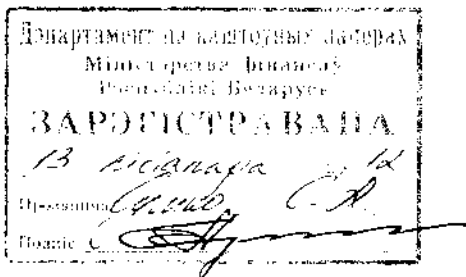 Дэпартамент па каштоўных паперах
Міністэрства фінансаў
Рэспублікі Беларусь
ЗАРЭГІСТРАВАНА
13 лістапада 12
Прозвішча С. А.
Подпіс